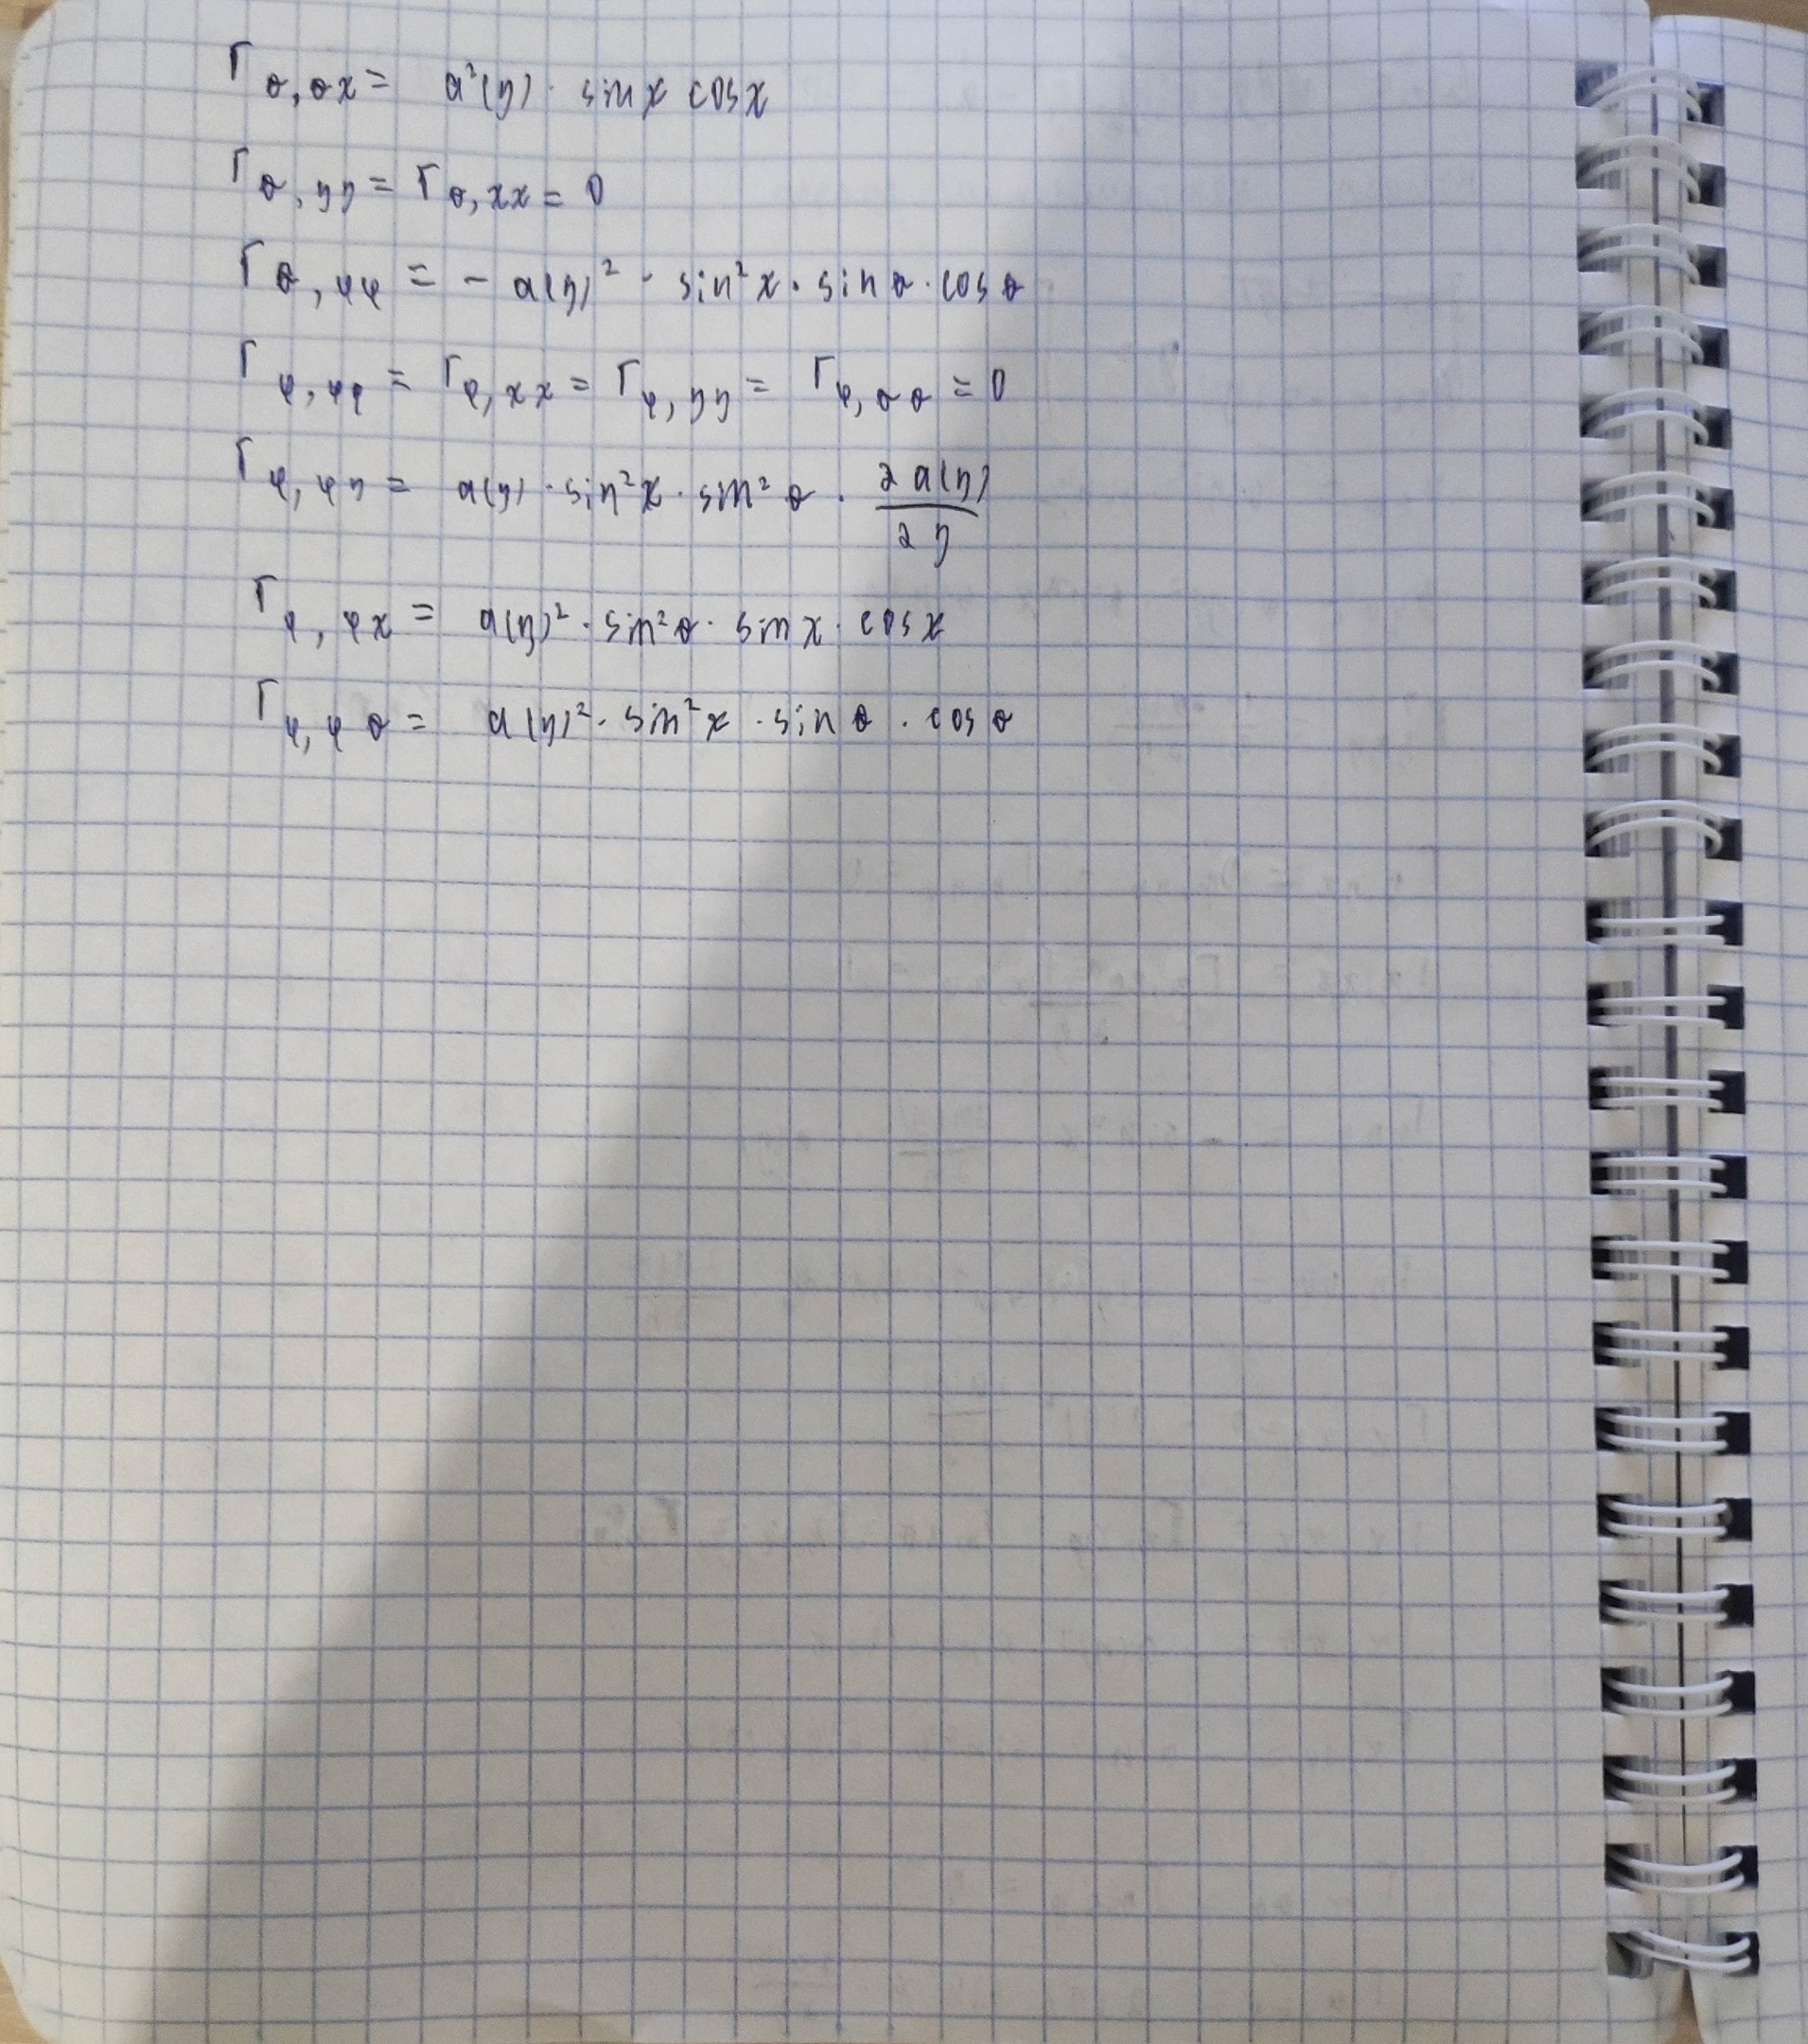 Γ θ, θχ = a²(η) · sinχ cosχ
Γ θ, ηη = Γ θ, χχ = 0
Γ θ, φφ = - a(η)² · sin²χ · sinθ · cosθ
Γ φ, φφ = Γ φ, χχ = Γ φ, ηη = Γ φ, θθ = 0
Γ φ, φη = a(η) · sin²χ · sin²θ · ∂a(η)/∂η
Γ φ, φχ = a(η)² · sin²θ · sinχ · cosχ
Γ φ, φθ = a(η)² · sin²χ · sinθ · cosθ